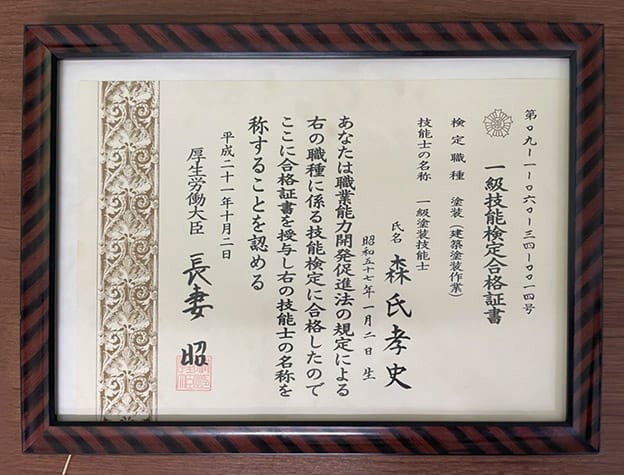 第〇九-一-〇六〇-三四-〇〇一四号
一級技能検定合格証書
検定職種 塗装(建築塗装作業)
技能士の名称 一級塗装技能士
氏名 森氏孝史
昭和五十七年一月二日生
あなたは職業能力開発促進法の規定による
右の職種に係る技能検定に合格したので
ここに合格証書を授与し右の技能士の名称を
称することを認める
平成二十一年十月二日
厚生労働大臣 長妻昭